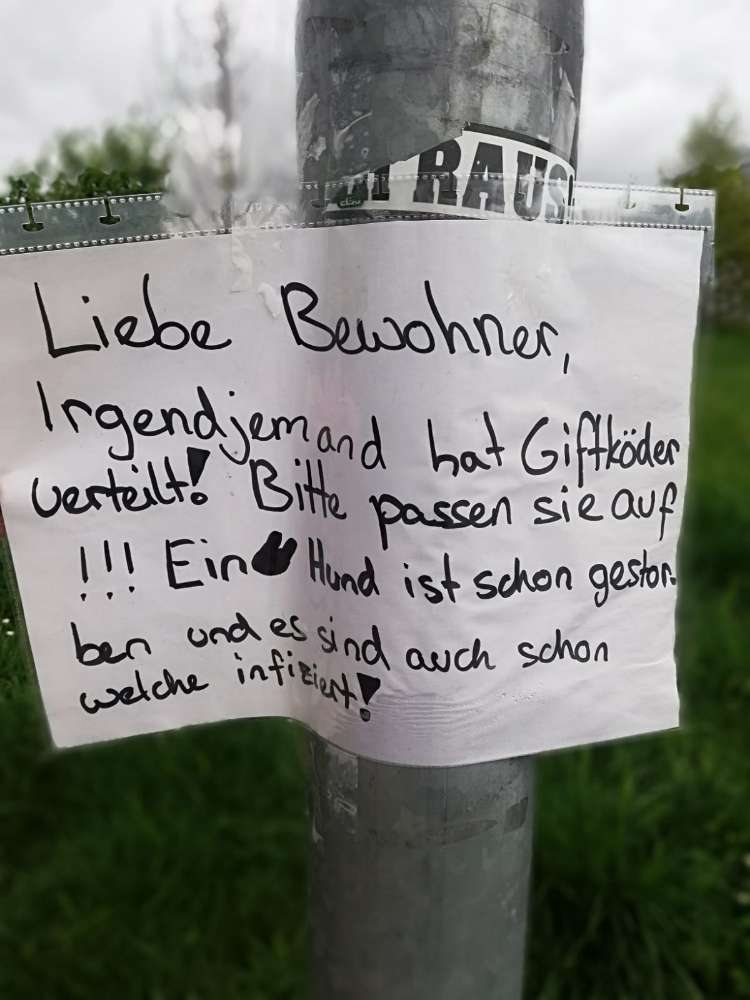 RAUS
Liebe Bewohner,
Irgendjemand hat Giftköder
verteilt! Bitte passen sie auf
!!! Ein Hund ist schon gestor-
ben und es sind auch schon
welche infiziert!